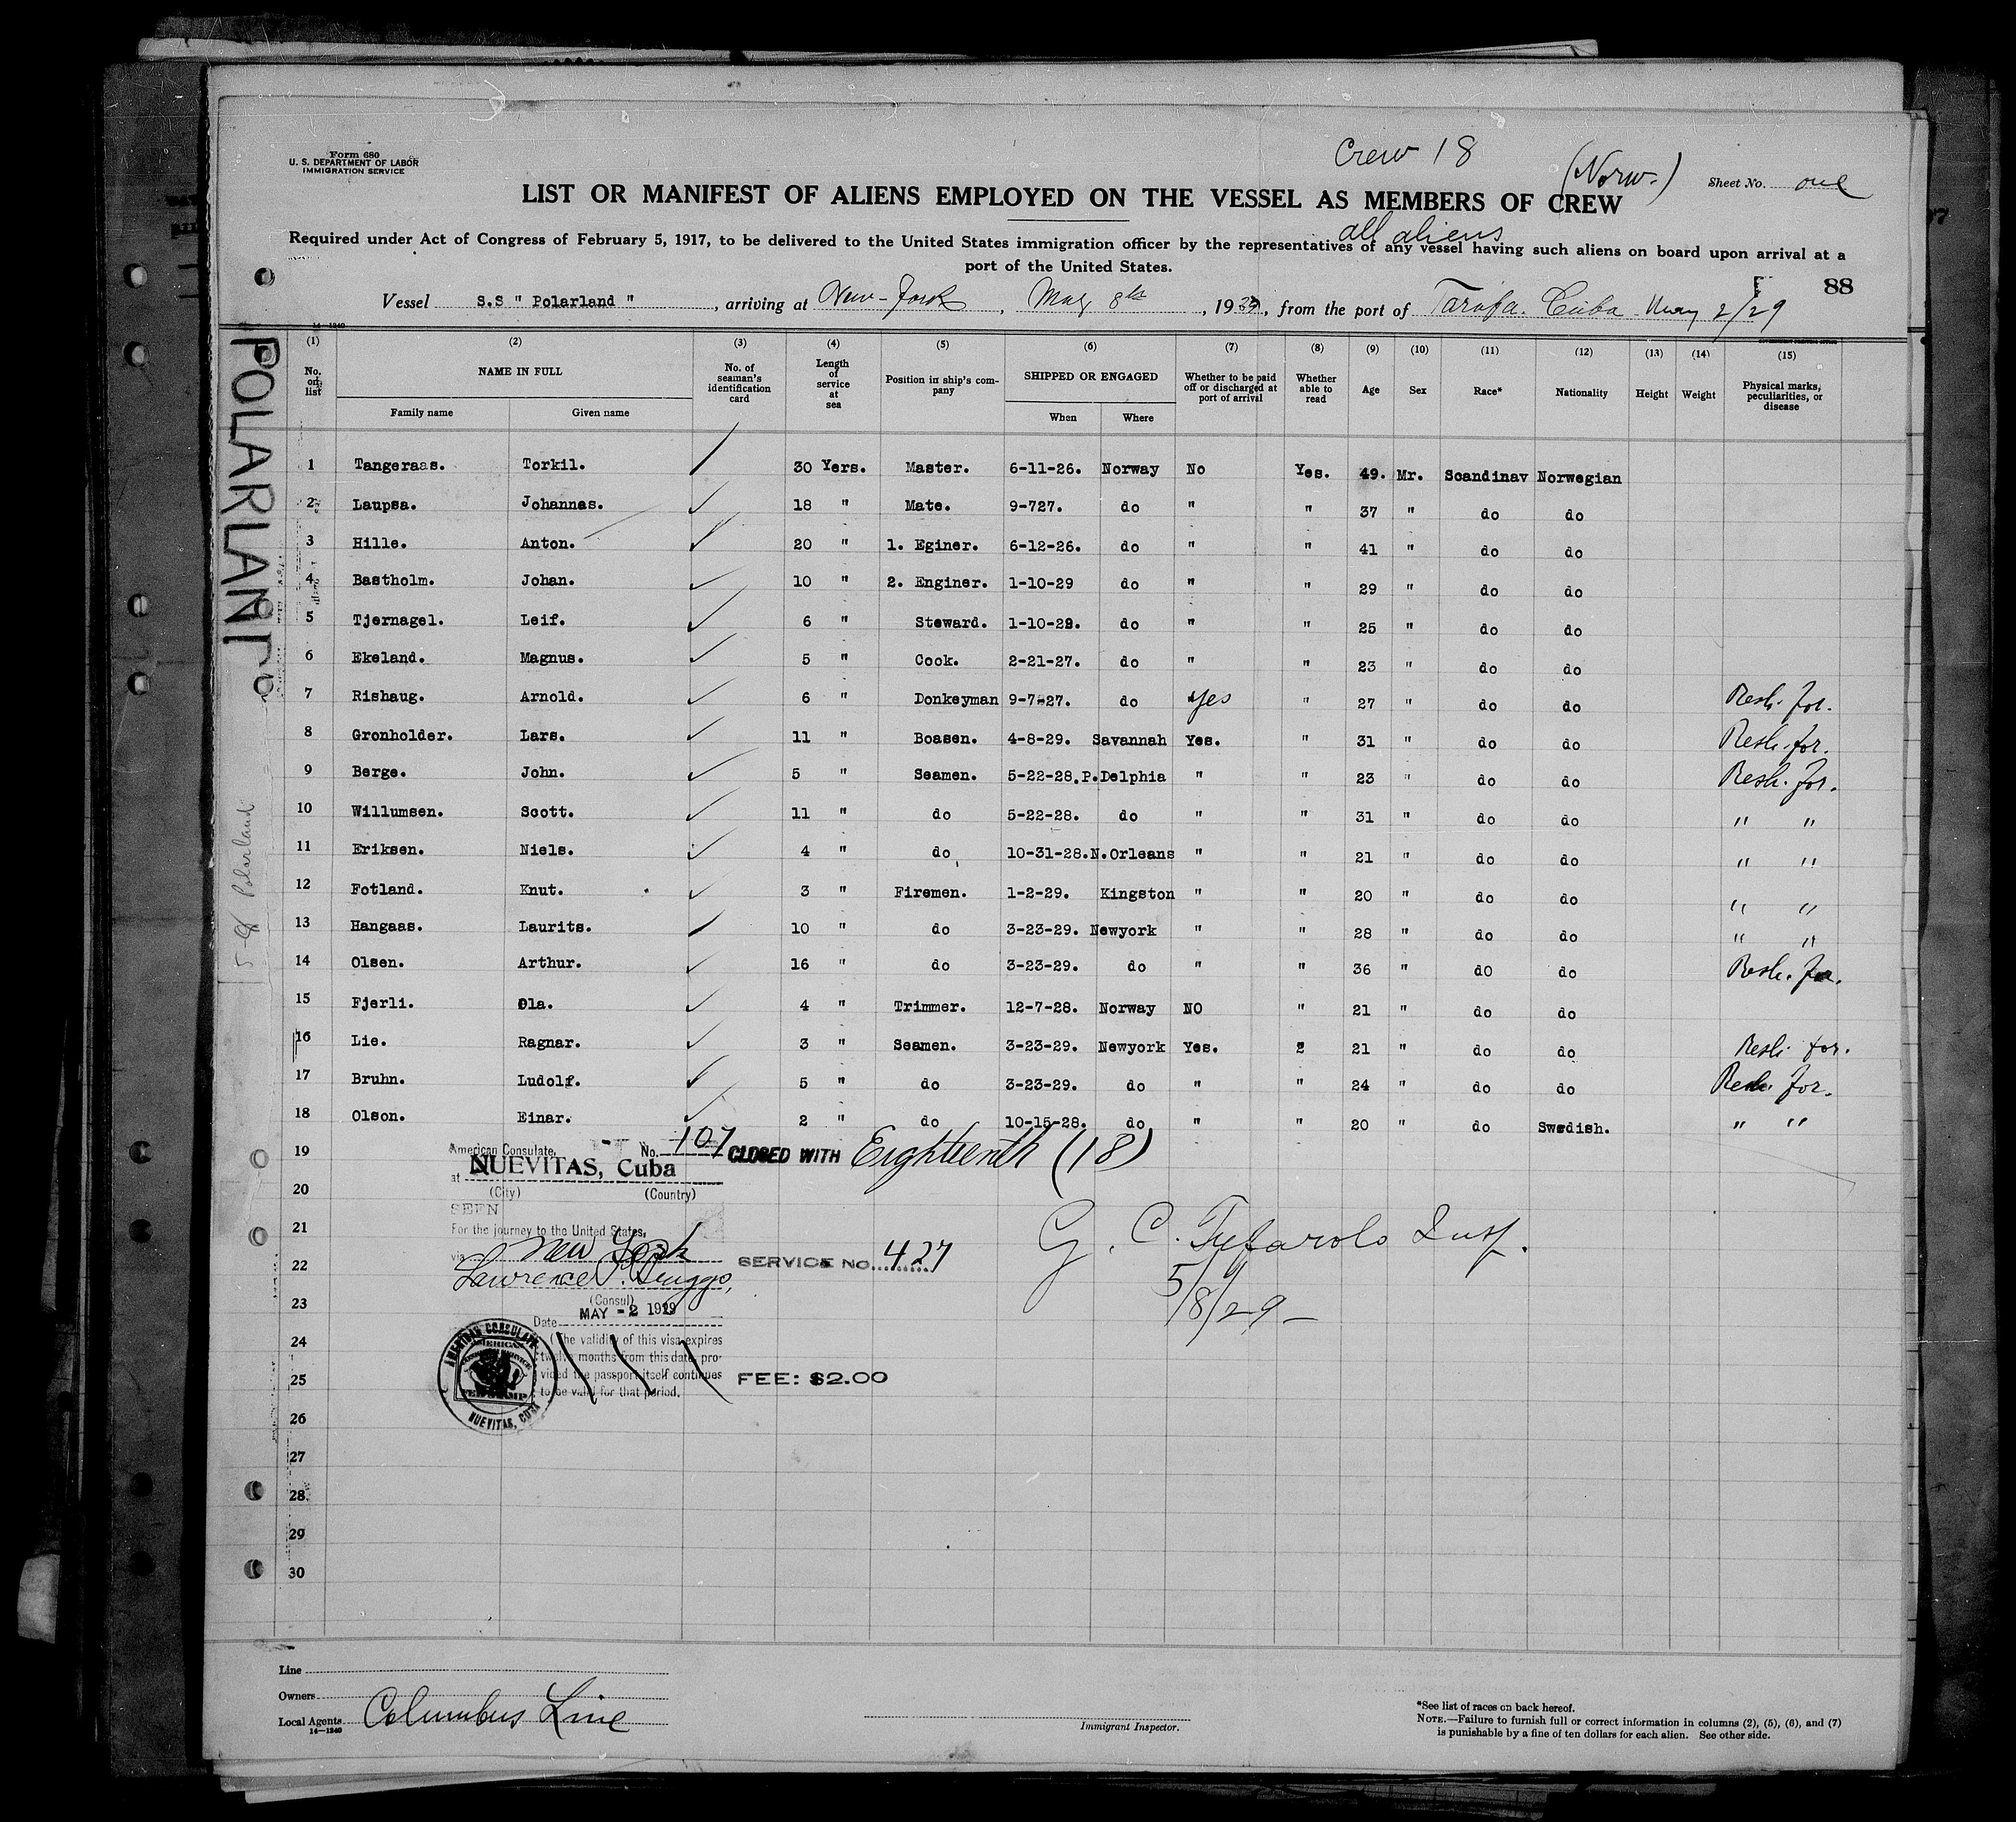 Form 680
U. S. DEPARTMENT OF LABOR
IMMIGRATION SERVICE
Crew 18
(Norw.)
Sheet No. one
LIST OR MANIFEST OF ALIENS EMPLOYED ON THE VESSEL AS MEMBERS OF CREW
all aliens
Required under Act of Congress of February 5, 1917, to be delivered to the United States immigration officer by the representatives of any vessel having such aliens on board upon arrival at a
port of the United States.
88
Vessel S.S " Polarland " , arriving at New-York , May 8th , 1929, from the port of Tarafa. Cuba May 2/29
14-1240
POLARLAND
5-8 Polarland
(1) (2) (3) (4) (5) (6) (7) (8) (9) (10) (11) (12) (13) (14) (15)
No. on list NAME IN FULL Family name Given name No. of seaman's identification card Length of service at sea Position in ship's company SHIPPED OR ENGAGED When Where Whether to be paid off or discharged at port of arrival Whether able to read Age Sex Race* Nationality Height Weight Physical marks, peculiarities, or disease
1 Tangeraas. Torkil. 30 Yers. Master. 6-11-26. Norway No Yes. 49. Mr. Scandinav Norwegian
2 Laupsa. Johannas. 18 " Mate. 9-727. do " " 37 " do do
3 Hille. Anton. 20 " 1. Eginer. 6-12-26. do " " 41 " do do
4 Bastholm. Johan. 10 " 2. Enginer. 1-10-29 do " " 29 " do do
5 Tjernagel. Leif. 6 " Steward. 1-10-29. do " " 25 " do do
6 Ekeland. Magnus. 5 " Cook. 2-21-27. do " " 23 " do do
7 Rishaug. Arnold. 6 " Donkeyman 9-7-27. do Yes " 27 " do do Resh. for.
8 Gronholder. Lars. 11 " Boasen. 4-8-29. Savannah Yes. " 31 " do do Resh. for.
9 Berge. John. 5 " Seamen. 5-22-28. P.Delphia " " 23 " do do Resh. for.
10 Willumsen. Scott. 11 " do 5-22-28. do " " 31 " do do " "
11 Eriksen. Niels. 4 " do 10-31-28. N.Orleans " " 21 " do do " "
12 Fotland. Knut. 3 " Firemen. 1-2-29. Kingston " " 20 " do do " "
13 Hangaas. Laurits. 10 " do 3-23-29. Newyork " " 28 " do do " "
14 Olsen. Arthur. 16 " do 3-23-29. do " " 36 " do do Resh. for.
15 Fjerli. Ola. 4 " Trimmer. 12-7-28. Norway NO " 21 " do do
16 Lie. Ragnar. 3 " Seamen. 3-23-29. Newyork Yes. 2 21 " do do Resh. for.
17 Bruhn. Ludolf. 5 " do 3-23-29. do " " 24 " do do Resh. for.
18 Olson. Einar. 2 " do 10-15-28. do " " 20 " do Swedish. " "
19
20
21
22
23
24
25
26
27
28
29
30
American Consulate, No. 107
at NUEVITAS, Cuba
(City) (Country)
SEEN
For the journey to the United States,
via New York
Lawrence P. Briggs,
(Consul)
Date MAY - 2 1929
(The validity of this visa expires
twelve months from this date, pro-
vided the passport itself continues
to be valid for that period.
AMERICAN CONSULATE
NUEVITAS, CUBA
CLOSED WITH Eighteenth (18)
SERVICE NO. 427
FEE: $2.00
G. C. Tufarolo Insp.
5/8/29
Line
Owners
Local Agents Columbus Line
14-1240
Immigrant Inspector.
*See list of races on back hereof.
NOTE.—Failure to furnish full or correct information in columns (2), (5), (6), and (7)
is punishable by a fine of ten dollars for each alien. See other side.